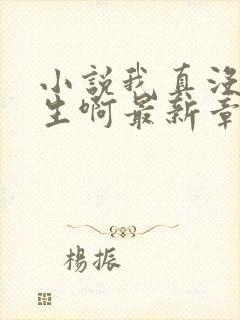 小説我真没
生啊最新章
楊振